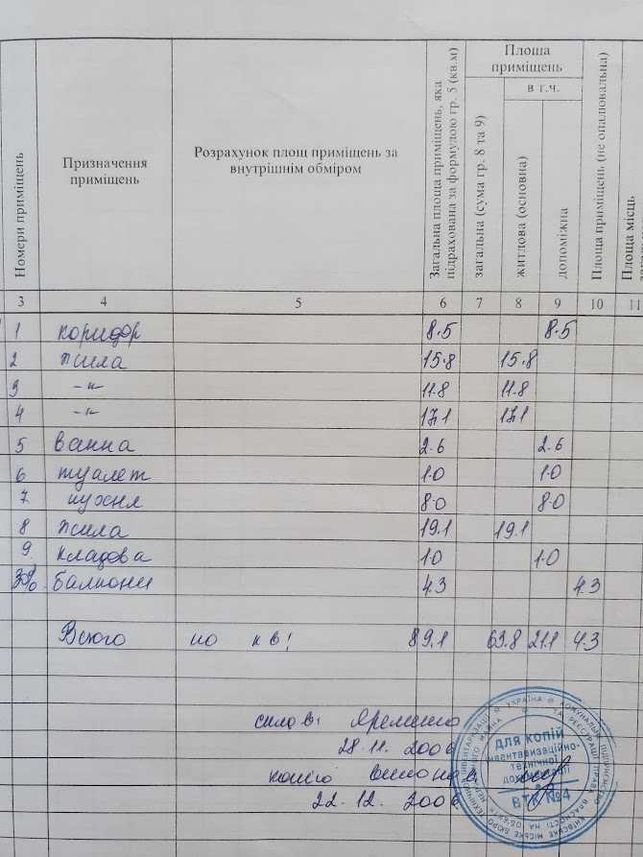 Номери приміщень
Призначення приміщень
Розрахунок площ приміщень за внутрішнім обміром
Загальна площа приміщень, яка підрахована за формулою гр. 5 (кв.м)
Площа приміщень
в т.ч.
загальна (сума гр. 8 та 9)
житлова (основна)
допоміжна
Площа приміщень (не опалювальна)
Площа місць
3 4 5 6 7 8 9 10 11
1 коридор 8.5 8.5
2 жила 15.8 15.8
3 -"- 11.8 11.8
4 -"- 17.1 17.1
5 ванна 2.6 2.6
6 туалет 1.0 1.0
7 кухня 8.0 8.0
8 жила 19.1 19.1
9 кладова 1.0 1.0
30% балкони 4.3 4.3
Всього по кв! 89.1 63.8 21.1 4.3
склав: Яременко
28.11. 2006
копію виконав
22.12. 2006
ДЛЯ КОПІЙ
інвентаризаційно-
технічної
документації
ВТК №4